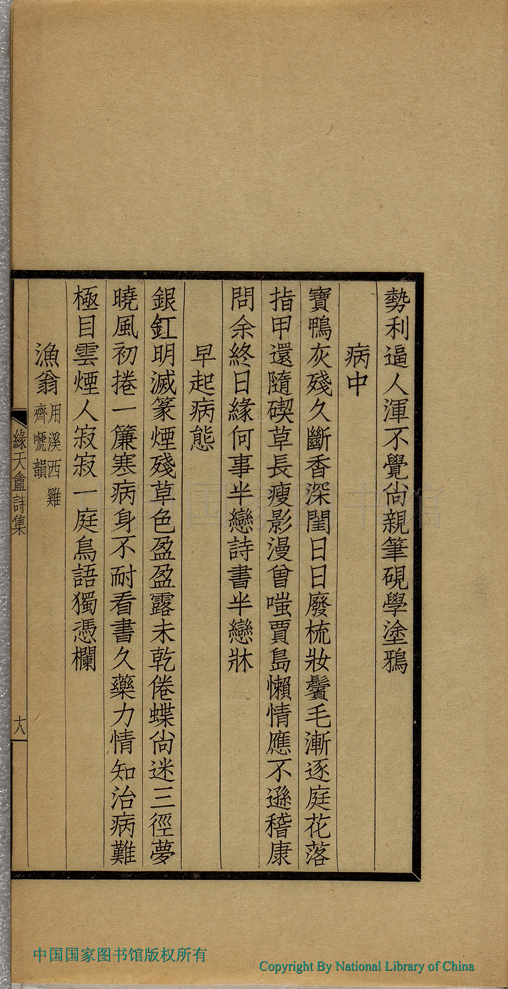 勢利逼人渾不覺尙親筆硯學塗鴉
病中
寶鴨灰殘久斷香深閨日日廢梳妝鬢毛漸逐庭花落
指甲還隨碶草長瘦影漫曾嗤賈島懶情應不遜稽康
問余終日緣何事半戀詩書半戀牀
早起病態
銀釭明滅篆煙殘草色盈盈露未乾倦蝶尙迷三徑夢
曉風初捲一簾寒病身不耐看書久藥力情知治病難
極目雲煙人寂寂一庭鳥語獨憑欄
漁翁 用溪西雞
齊嗁韻
綠天盦詩集
十八
中国国家图书馆版权所有
Copyright By National Library of China